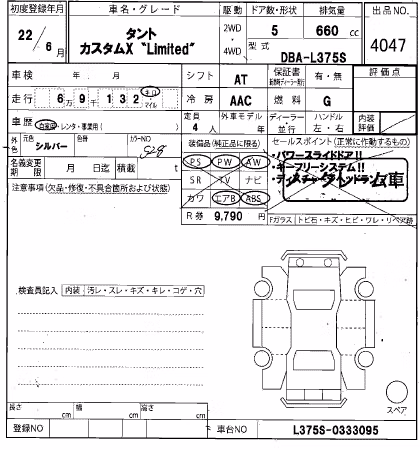 初度登録年月 車名・グレード 駆動 ドア数・形状 排気量 出品NO.
22 / 6月 タント 2WD ・ 4WD 5 660 cc 4047
カスタムX "Limited" 型式 DBA-L375S
車検 年 ・ 月 シフト AT 保証書 有・無 評価点
走行 6万9千132 キロ マイル 冷房 AAC 燃料 G
車歴 自家用・レンタ・事業用( ) 定員 4人 外車モデル 年 ディーラー・並行 ハンドル 左・右 内装評価
外色 元色 シルバー 色替 カラーNO S28 装備品(純正品に限る) セールスポイント(正常に作動するもの)
名義変更期限 月 日迄 積載 t PS PW AW ・パワースライドドア!!
注意事項(欠品・修復・不具合箇所および状態) SR TV ナビ ・キーフリーシステム!!
カワ エアB ABS
R券 9,790 円 Fガラス トビ石・キズ・ヒビ・ワレ・リペア跡
検査員記入 内装 汚レ・スレ・キズ・キレ・コゲ・穴
スペア
長さ cm 幅 cm 高さ cm
登録NO 車台NO L375S-0333095